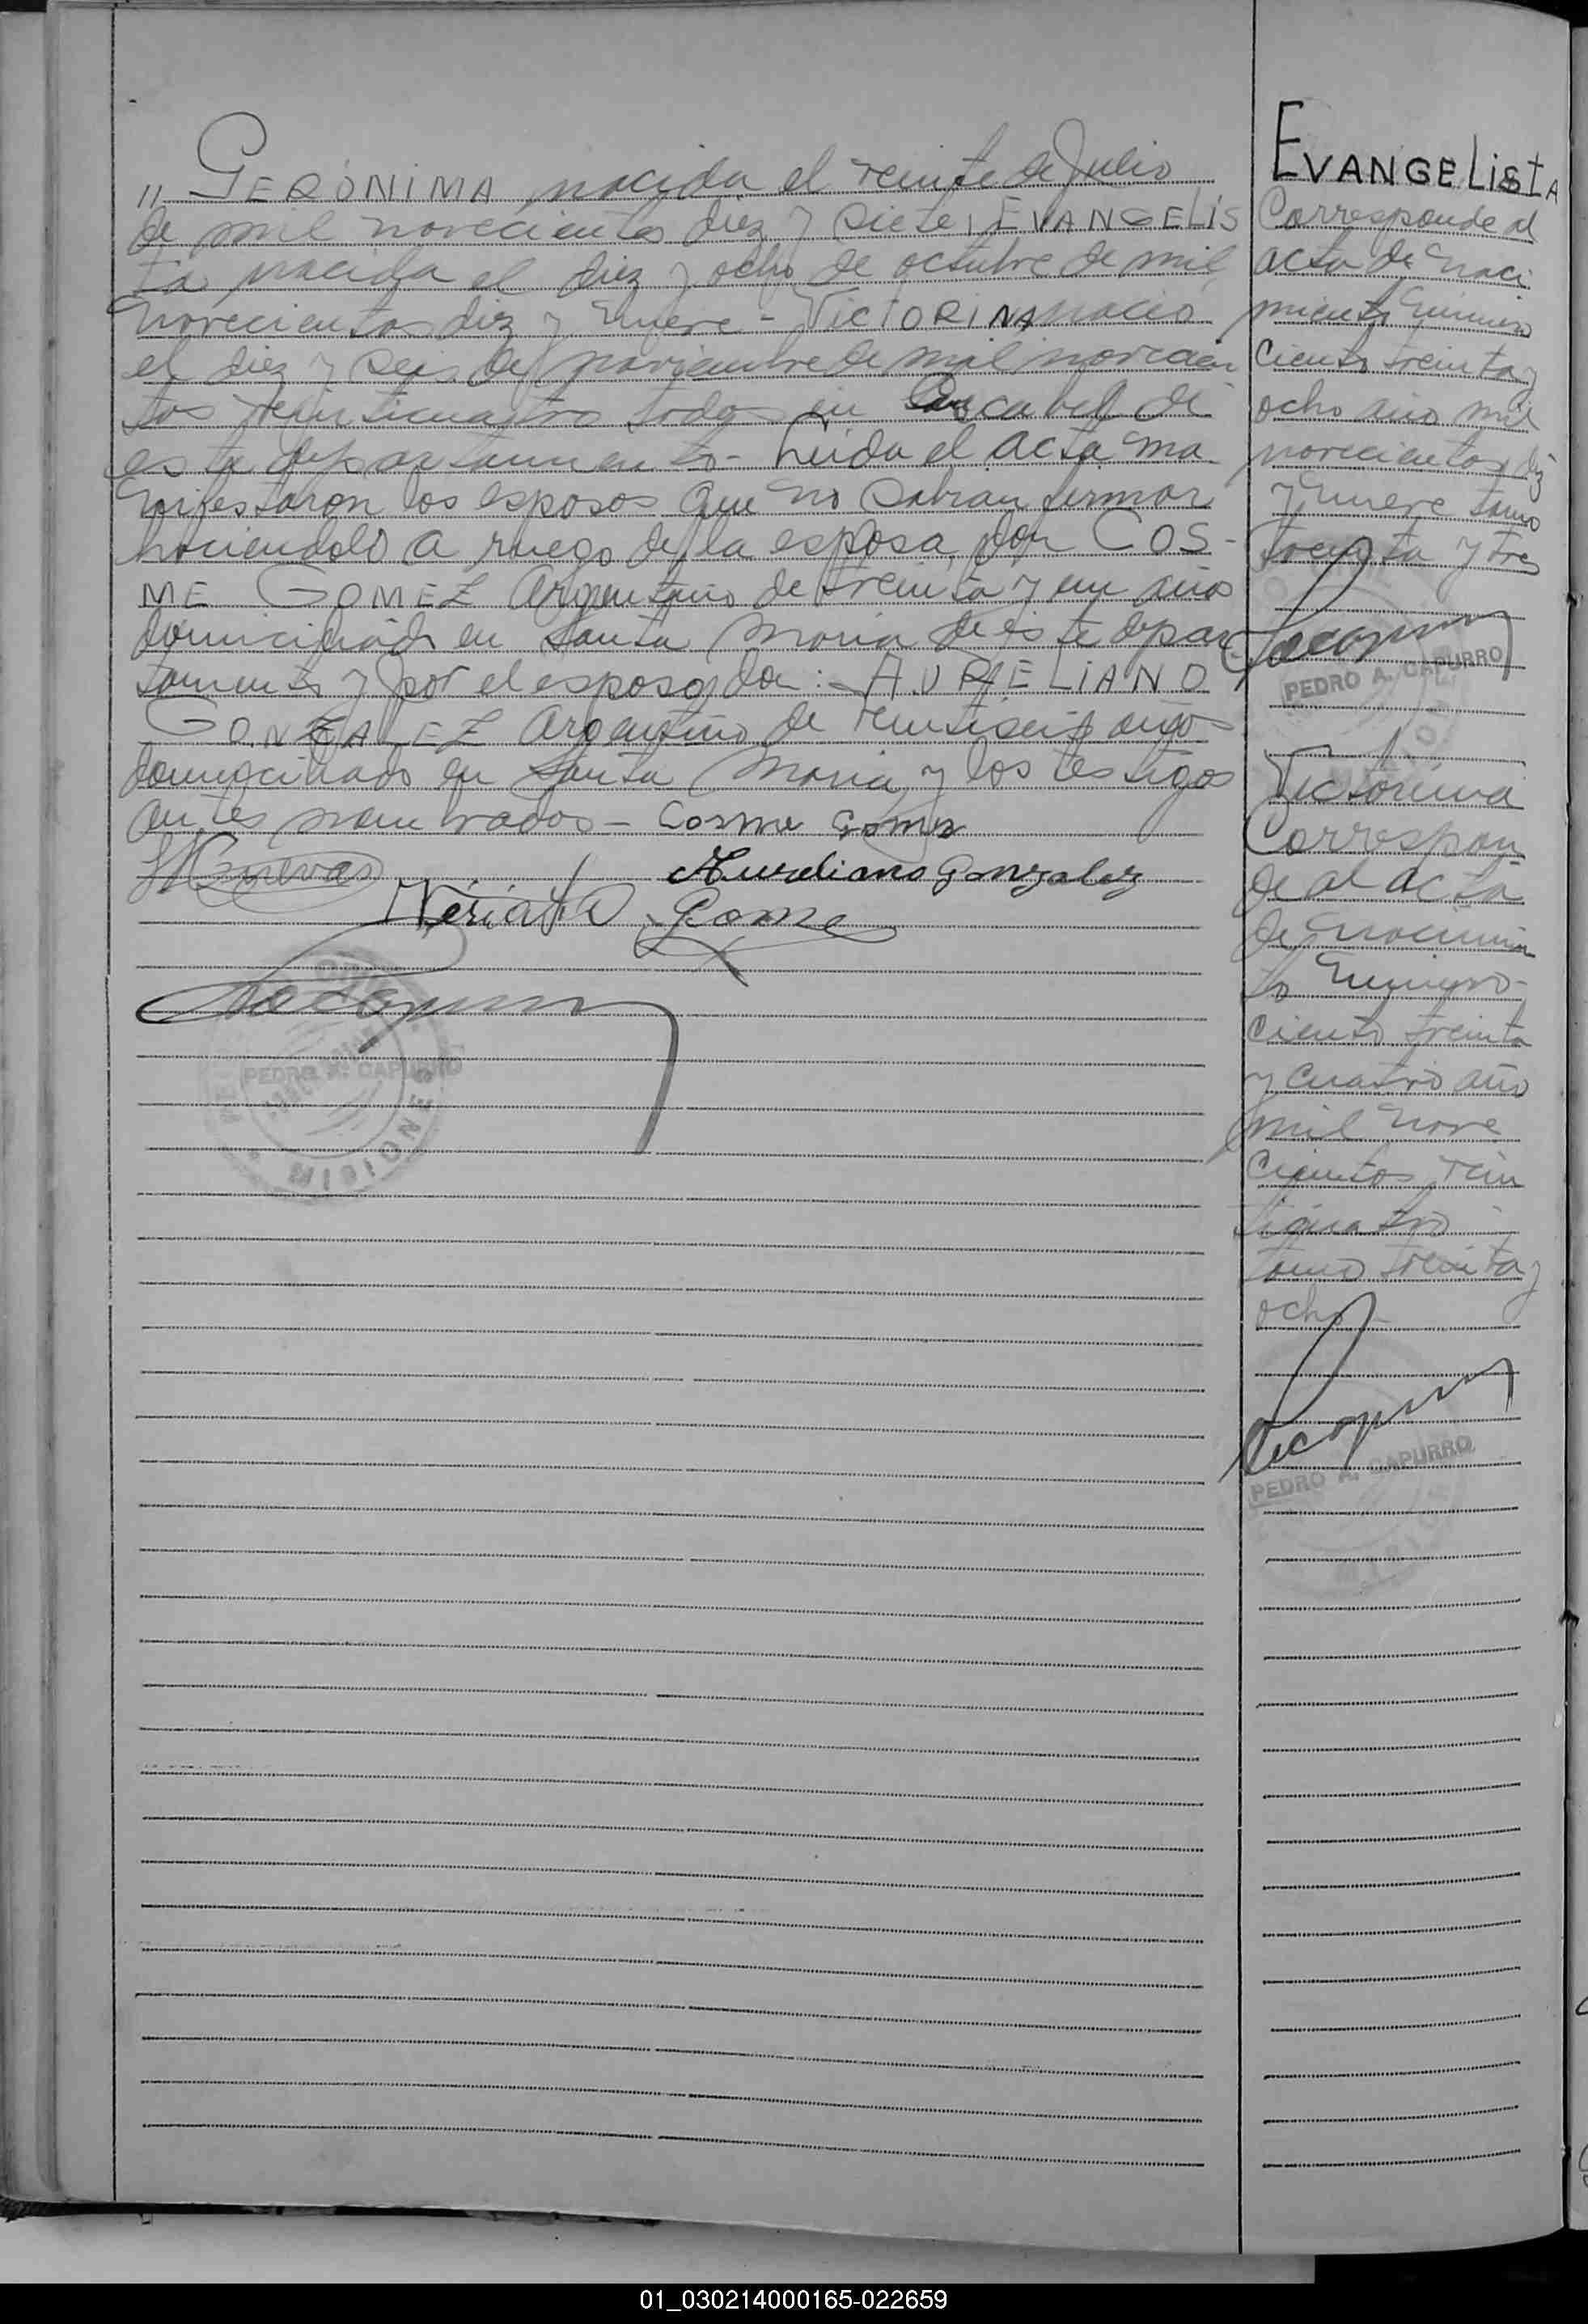 " GERÓNIMA nacida el veinte de Julio
de mil novecientos diez y siete, EVANGELIS
ta nacida el diez y ocho de octubre de mil
novecientos diez y nueve - VICTORINA nacio
el diez y seis de noviembre de mil novecien
tos veinticuatro todos en de
este departamento - Leida el acta ma
nifestaron los esposos que no sabian firmar
haciendolo a ruego de la esposa don COS-
ME GOMEZ Argentino de treinta y un años
domiciliado en Santa Maria de este depar
tamento y por el esposo don: - AURELIANO
GONZALEZ Argentino de veintiseis años
domiciliado en Santa Maria y los testigos
antes nombrados - Cosme Gomez
Aureliano Gonzalez
Gome
PEDRO A. CAPURRO
MISIONES
EVANGELISTA
Corresponde al
acta de naci
miento número
ciento treinta y
ocho año mil
novecientos diez
y nueve tomo
treinta y tres
PEDRO A. CAPURRO
Victorina
Correspon
de al acta
de nacimien
to número
ciento treinta
y cuatro año
mil nove
cientos vein
ticuatro
tomo treinta y
ocho -
PEDRO A. CAPURRO
01_030214000165-022659